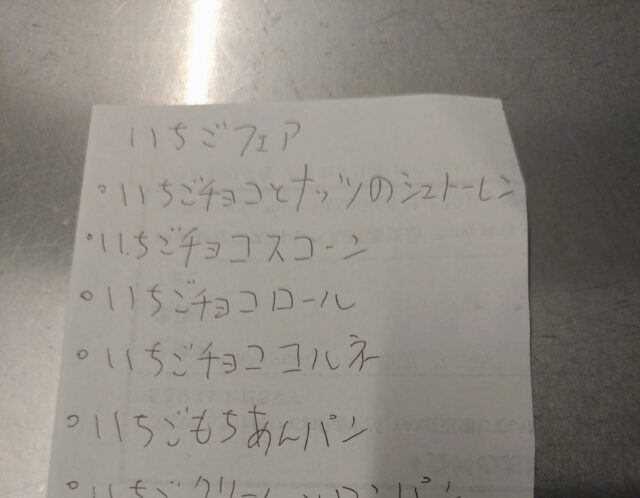 いちごフェア
○いちごチョコとナッツのシュトーレン
○いちごチョコスコーン
○いちごチョコロール
○いちごチョココルネ
○いちごもちあんパン
○いちごクリームメロンパン